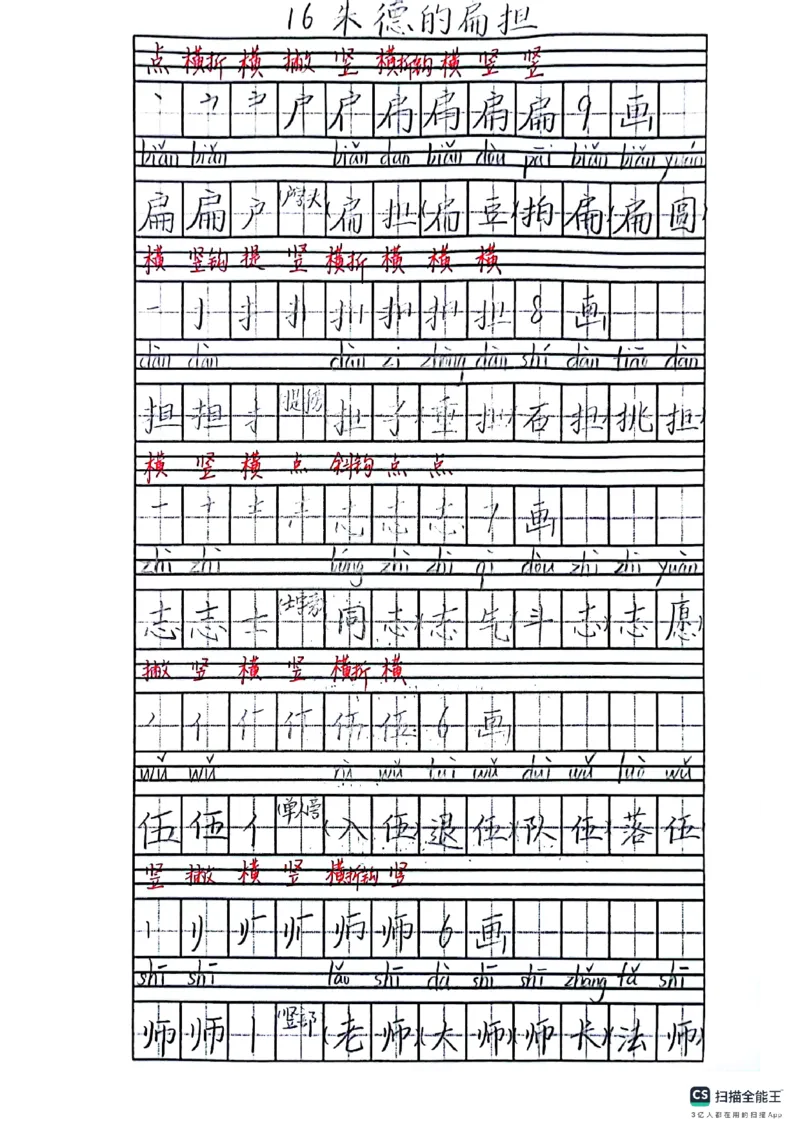 16 朱德的扁担
点 横折 横 撇 竖 横折钩 横 竖 竖
丶 户 扁 扁 扁 扁 9 画
biǎn biǎn biǎn dan biǎn dòu pāi biǎn biǎn yuán
扁 扁 户 户字头 (扁 担)(扁 豆)(拍 扁)(扁 圆)
横 竖钩 提 竖 横折 横 横 横
一 扌 担 8 画
dàn dàn dàn zi zhòng dàn shí dàn tiāo dàn
担 担 扌 提手旁 (担 子)(重 担)(石 担)(挑 担)
横 竖 横 点 斜钩 点 点
一 十 士 志 志 志 7 画
zhì zhì tóng zhì zhì qì dòu zhì zhì yuàn
志 志 士 士字头 (同 志)(志 气)(斗 志)(志 愿)
撇 竖 横 竖 横折 横
丿 亻 伍 伍 6 画
wǔ wǔ rù wǔ tuì wǔ duì wǔ luò wǔ
伍 伍 亻 单人旁 (入 伍)(退 伍)(队 伍)(落 伍)
竖 撇 横 竖 横折钩 竖
丨 师 师 6 画
shī shī lǎo shī dà shī shī zhǎng fǎ shī
师 师 丨 竖部 (老 师)(大 师)(师 长)(法 师)
CS 扫描全能王
3亿人都在用的扫描App